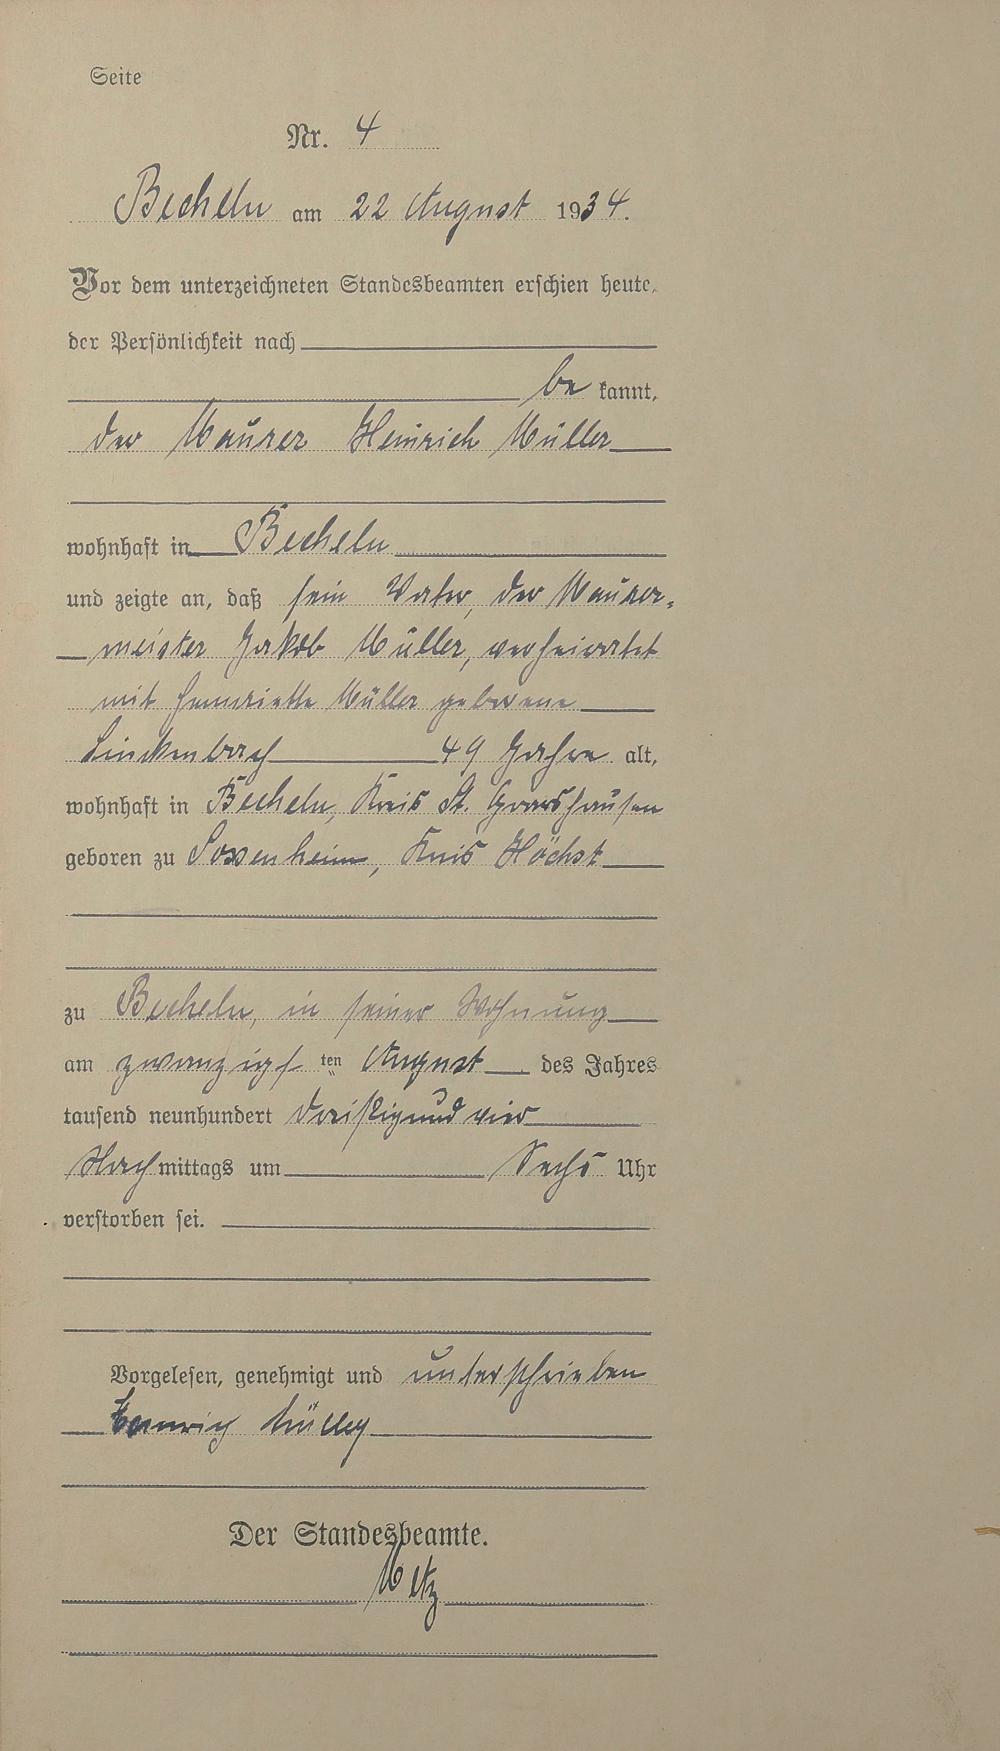 Seite
Nr. 4
Becheln am 22 August 1934.
Vor dem unterzeichneten Standesbeamten erschien heute,
der Persönlichkeit nach
be kannt,
der Maurer Heinrich Müller
wohnhaft in Becheln
und zeigte an, daß sein Vater, der Maurer-
meister Jakob Müller, verheiratet
mit Henriette Müller geborene
Linkenbach 49 Jahre alt,
wohnhaft in Becheln, Kreis St. Goarshausen
geboren zu Sossenheim, Kreis Höchst
zu Becheln, in seiner Wohnung
am zwanzigs ten August des Jahres
tausend neunhundert dreißigundvier
Nach mittags um Sechs Uhr
verstorben sei.
Vorgelesen, genehmigt und unterschrieben
Müller
Der Standesbeamte.
Metz